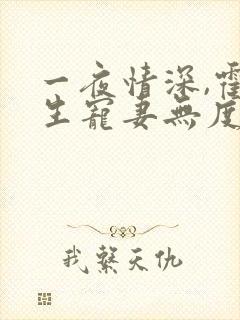 一夜情深,霍
生寵妻無度
我繫天仇